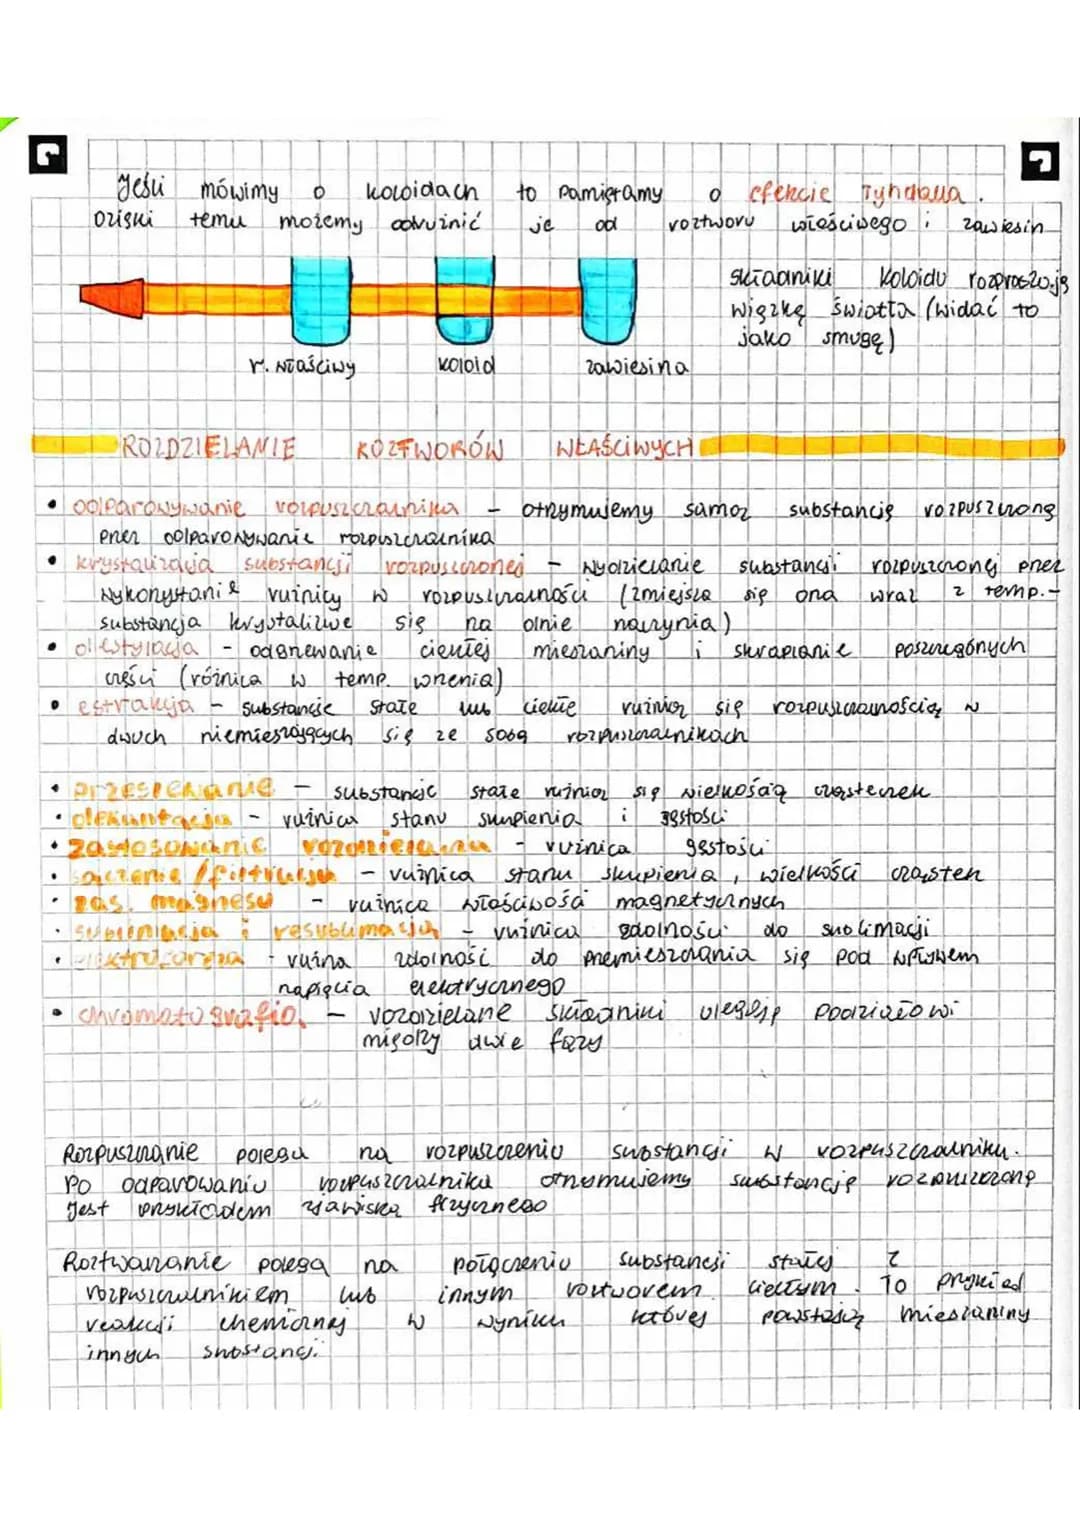 Jeśli mówimy o koloidach to pamiętamy o efekcie Tyndalla.
Dzięki temu możemy odróżnić je od roztworu właściwego i zawiesin
składniki koloidu rozpraszają
wiązkę światła (widać to
jako smugę)
r. właściwy koloid zawiesina
ROZDZIELANIE ROZTWORÓW WŁAŚCIWYCH
• odparowywanie rozpuszczalnika - otrzymujemy samą substancję rozpuszczoną
przez odparowywanie rozpuszczalnika
• krystalizacja substancji rozpuszczonej - wydzielanie substancji rozpuszczonej przez
wykorzystanie różnicy w rozpuszczalności (zmiejsza się ona wraz z temp.-
substancja krystalizuje się na dnie naczynia)
• destylacja - odgrzewanie ciekłej mieszaniny i skraplanie poszczególnych
części (różnica w temp. wrzenia)
• estrakcja - substancje stałe lub ciekłe różnią się rozpuszczalnością w
dwóch niemieszających się ze sobą rozpuszczalnikach
• przesiewanie - substancje stałe różnią się wielkością cząsteczek
• dekantacja - różnica stanu skupienia i gęstości
• zastosowanie rozdzielacza - różnica gęstości
• sączenie /filtracja - różnica stanu skupienia, wielkości cząstek
• zas. magnesu - różnica właściwości magnetycznych
• sublimacja i resublimacja - różnica zdolności do sublimacji
• elektroforeza - różna zdolność do przemieszczania się pod wpływem
napięcia elektrycznego
• chromatografia - rozdzielane składniki ulegają podziałowi
między dwie fazy
Rozpuszczanie polega na rozpuszczeniu substancji w rozpuszczalniku.
Po odparowaniu rozpuszczalnika otrzymujemy substancję rozpuszczoną
Jest przykładem zjawiska fizycznego
Roztwarzanie polega na połączeniu substancji stałej z
rozpuszczalnikiem lub innym roztworem ciekłym. To przykład
reakcji chemicznej w wyniku której powstają mieszaniny
innych substancji